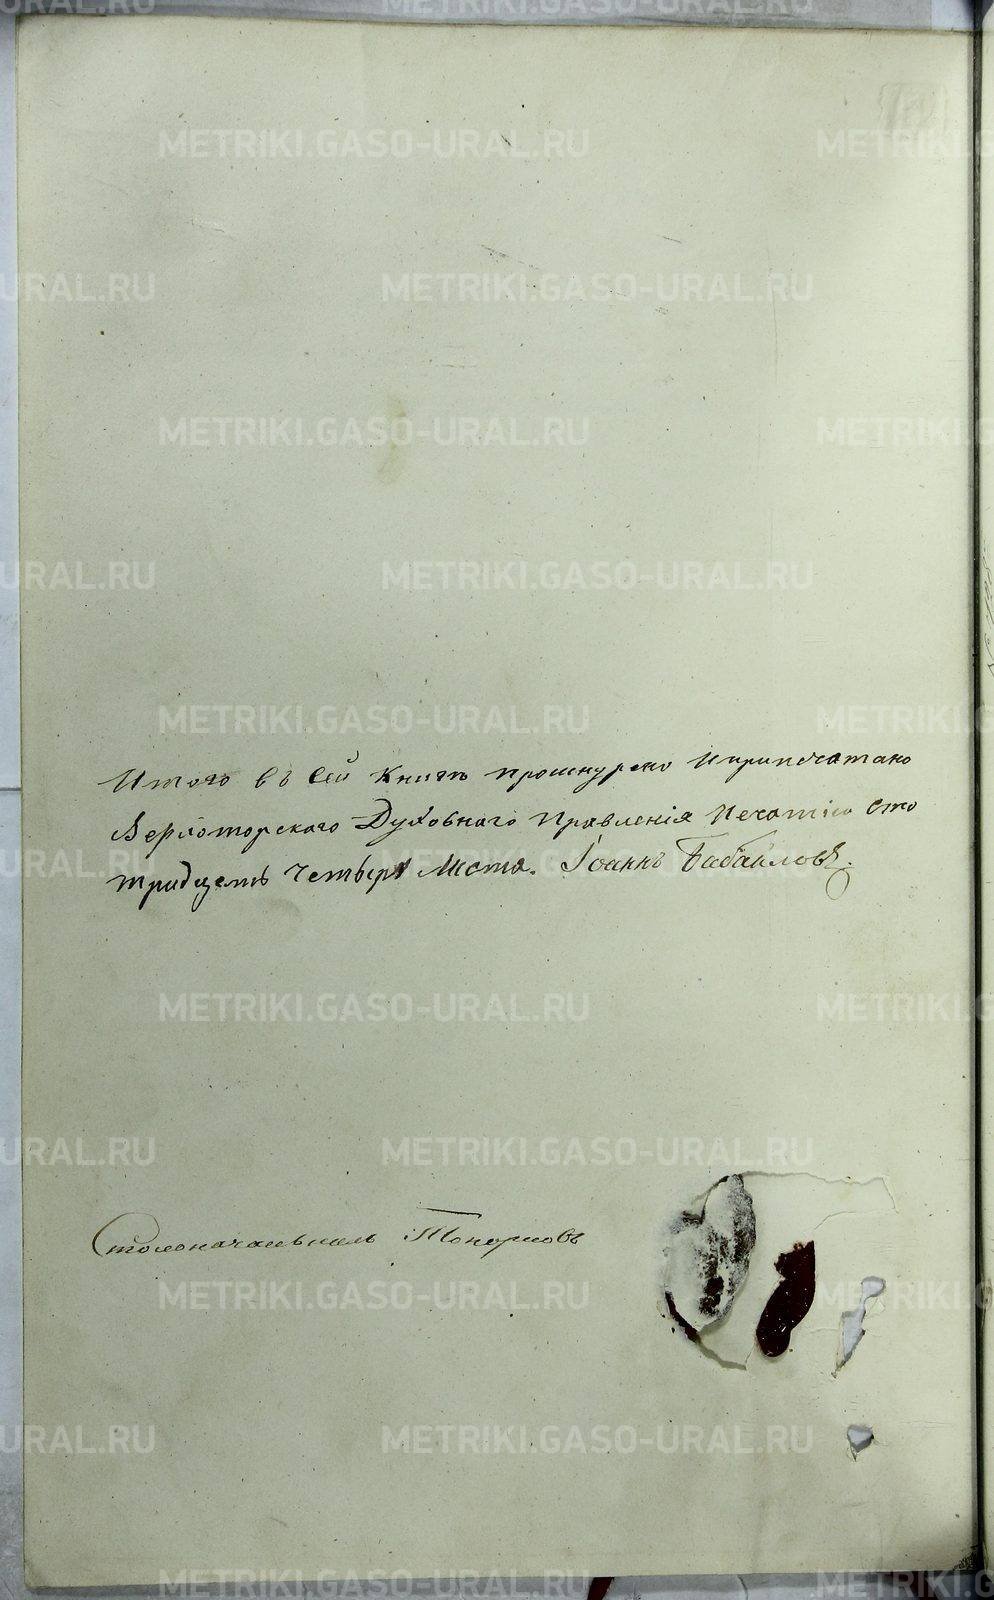 Итого въ сей книгѣ прошнурено и припечатано
Верхоторскаго Духовнаго Правленія печатію сто
тридцать четыре листа. Іоаннъ Бабайловъ.
Столоначальникъ
METRIKI.GASO-URAL.RU